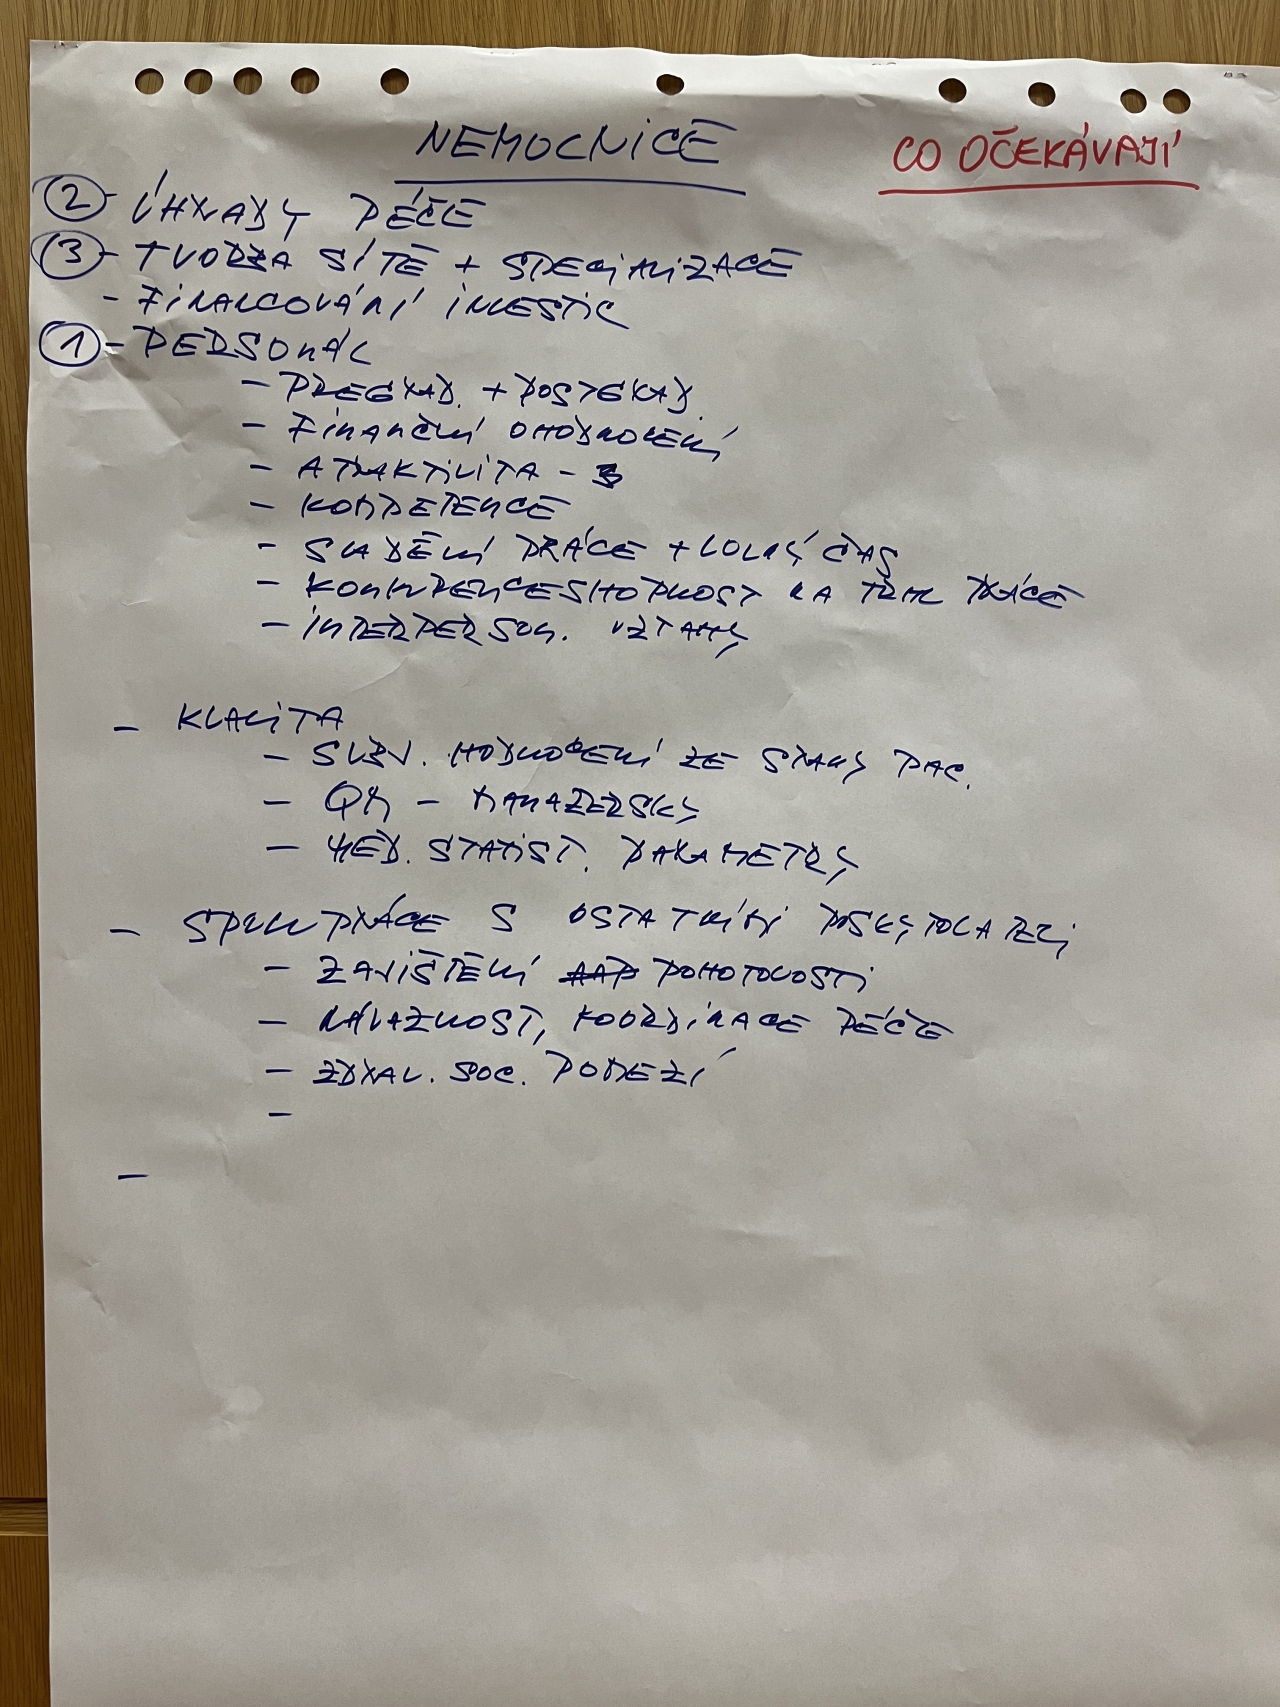 NEMOCNICE
CO OČEKÁVAJÍ
② - ÚHRADY PÉČE
③ - TVORBA SÍTĚ + SPECIALIZACE
- FINANCOVÁNÍ INVESTIC
① - PERSONÁL
- PREGRAD. + POSTGRAD.
- FINANČNÍ OHODNOCENÍ
- ATRAKTIVITA -
- KOMPETENCE
- SLADĚNÍ PRÁCE + VOLNÝ ČAS
- KONKURENCESHOPNOST NA TRHU PRÁCE
- INTERPERSON. VZTAHY
- KVALITA
- SUBJ. HODNOCENÍ ZE STRANY PAC.
- QM - MANAŽERSKÝ
- MED. STATIST. PARAMETRY
- SPOLUPRÁCE S OSTATNÍMI POSKYTOVATELI
- ZAJIŠTĚNÍ POHOTOVOSTI
- NÁVAZNOST, KOORDINACE PÉČE
- ZDRAV. SOC. POMEZÍ
-
-